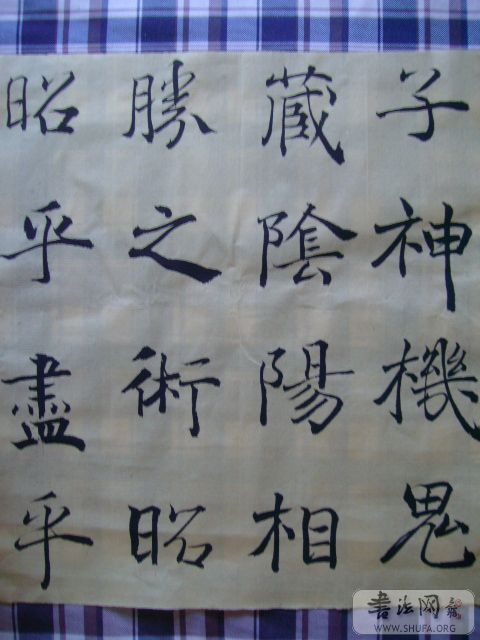 子神機鬼
藏陰陽相
勝之術昭
昭乎盡乎
書法网
WWW.SHUFA.ORG